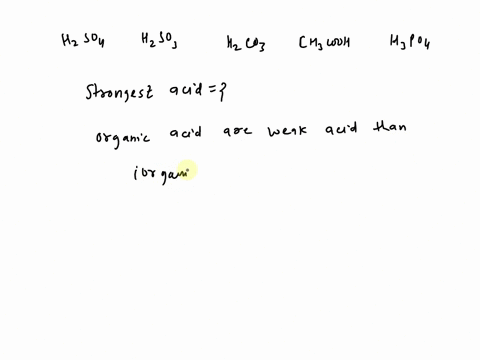 H2SO4 H2SO3 H2CO3 CH3COOH H3PO4
Strongest acid = ?
organic acid are weak acid than
iorgani